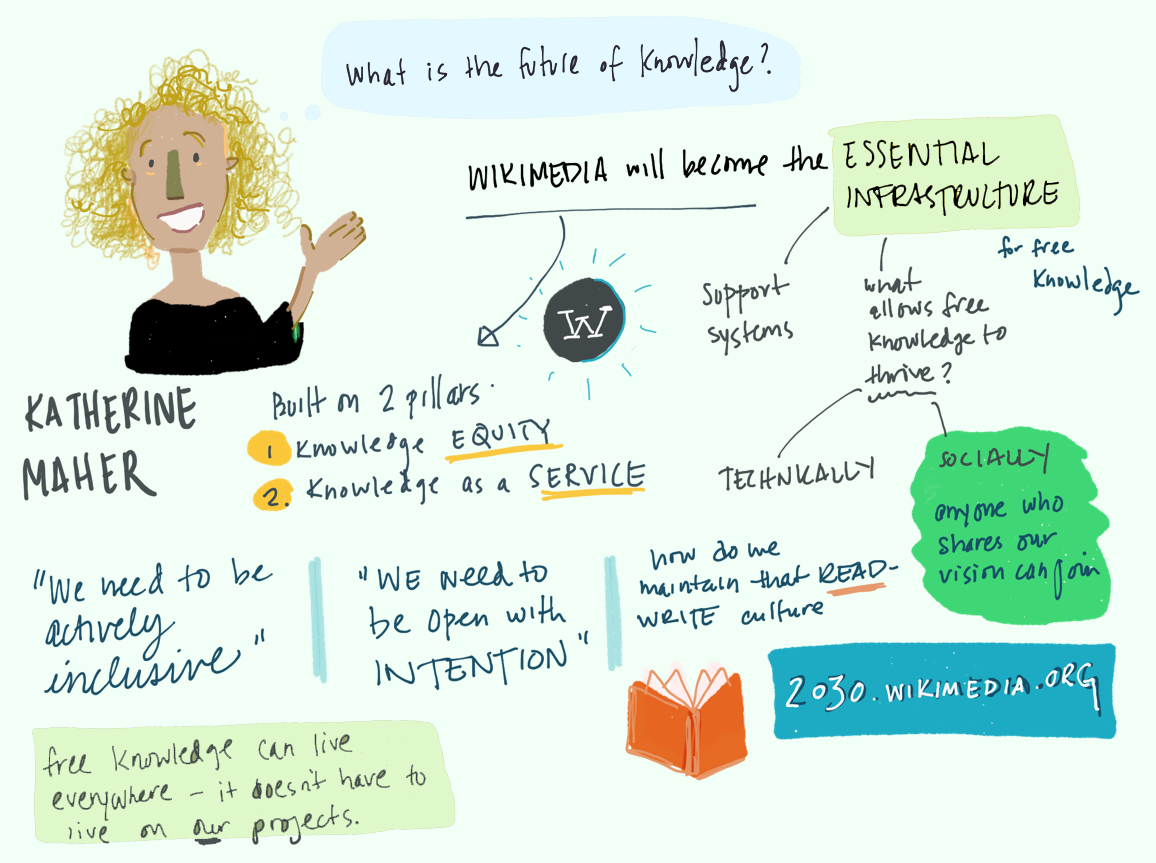 What is the future of Knowledge?
WIKIMEDIA will become the ESSENTIAL
INFRASTRUCTURE
for free
Knowledge
Support
systems
what
allows free
Knowledge to
thrive?
W
KATHERINE
MAHER
Built on 2 pillars.
1 Knowledge EQUITY
2. Knowledge as a SERVICE
TECHNICALLY
SOCIALLY
anyone who
shares our
vision can join
"We need to be
actively
inclusive"
"WE need to
be open with
INTENTION"
how do we
maintain that READ-
WRITE culture
2030.WIKIMEDIA.ORG
free Knowledge can live
everywhere - it doesn't have to
live on our projects.